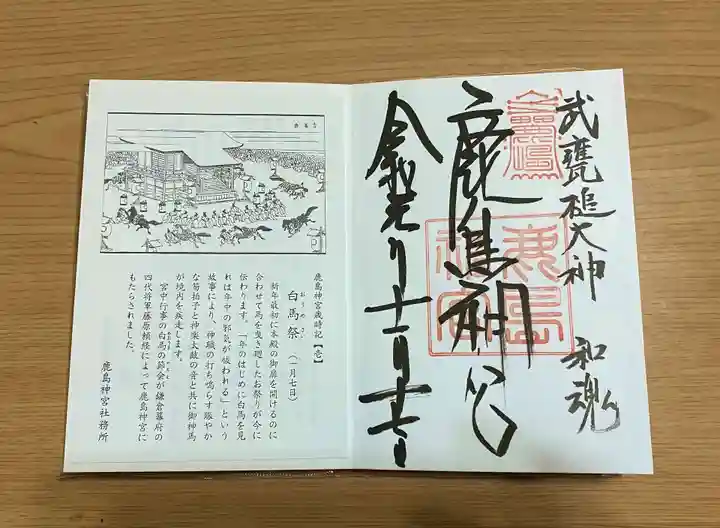 武甕槌大神 和魂
鹿島神宮
鹿島神宮
令和元年十一月十七日
鹿島神宮歳時記【壱】
白馬祭（一月七日）
おうめさい
新年最初に本殿の御扉を開けるのに
合わせて馬を曳き廻したお祭りが今に
伝わります。「一年のはじめに白馬を見
れば年中の邪気が祓われる」という
故事により、神職の打ち鳴らす賑やか
な笏拍子と神楽太鼓の音と共に御神馬
が境内を疾走します。
宮中行事の白馬の節会が鎌倉幕府の
四代将軍藤原頼経によって鹿島神宮に
もたらされました。
鹿島神宮社務所